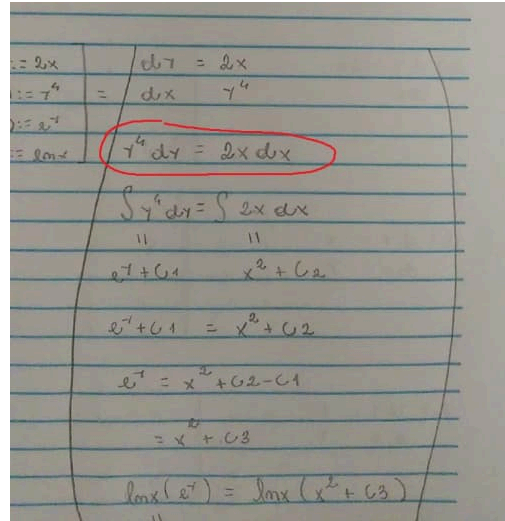 := 2x
:= y⁴
:= e^y
:= lnx
dy = 2x
= dx y⁴
y⁴ dy = 2x dx
∫ y⁴ dy = ∫ 2x dx
" "
e^y + C1 x² + C2
e^y + C1 = x² + C2
e^y = x² + C2 - C1
= x² + C3
lnx(e^y) = lnx(x² + C3)
"